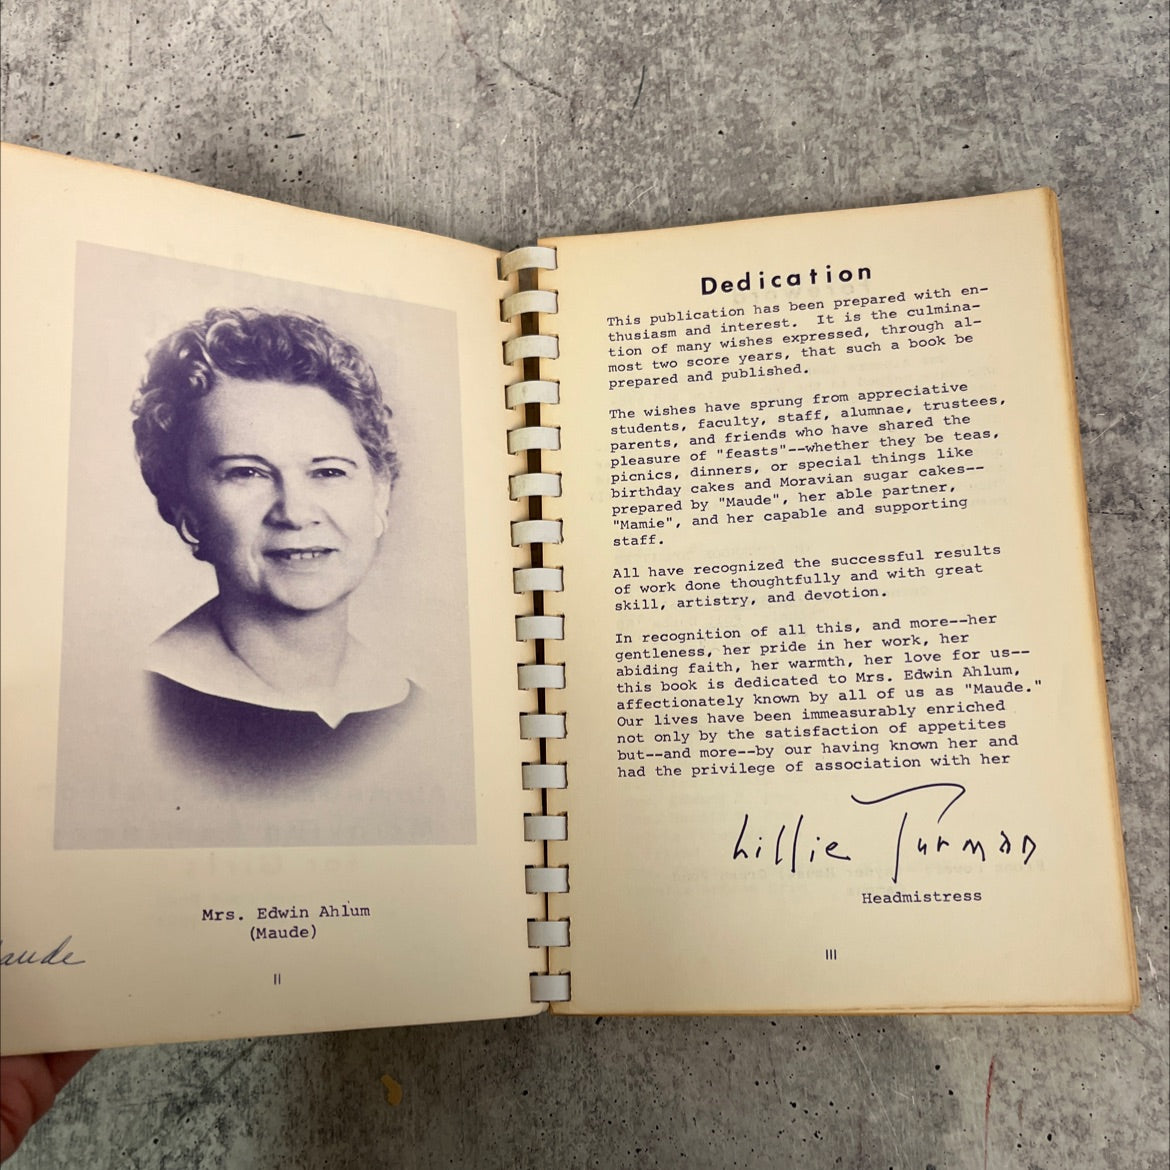 Mrs. Edwin Ahlum
(Maude)
II
Dedication
This publication has been prepared with en-
thusiasm and interest. It is the culmina-
tion of many wishes expressed, through al-
most two score years, that such a book be
prepared and published.
The wishes have sprung from appreciative
students, faculty, staff, alumnae, trustees,
parents, and friends who have shared the
pleasure of "feasts"--whether they be teas,
picnics, dinners, or special things like
birthday cakes and Moravian sugar cakes--
prepared by "Maude", her able partner,
"Mamie", and her capable and supporting
staff.
All have recognized the successful results
of work done thoughtfully and with great
skill, artistry, and devotion.
In recognition of all this, and more--her
gentleness, her pride in her work, her
abiding faith, her warmth, her love for us--
this book is dedicated to Mrs. Edwin Ahlum,
affectionately known by all of us as "Maude."
Our lives have been immeasurably enriched
not only by the satisfaction of appetites
but--and more--by our having known her and
had the privilege of association with her
Lillie Turman
Headmistress
III